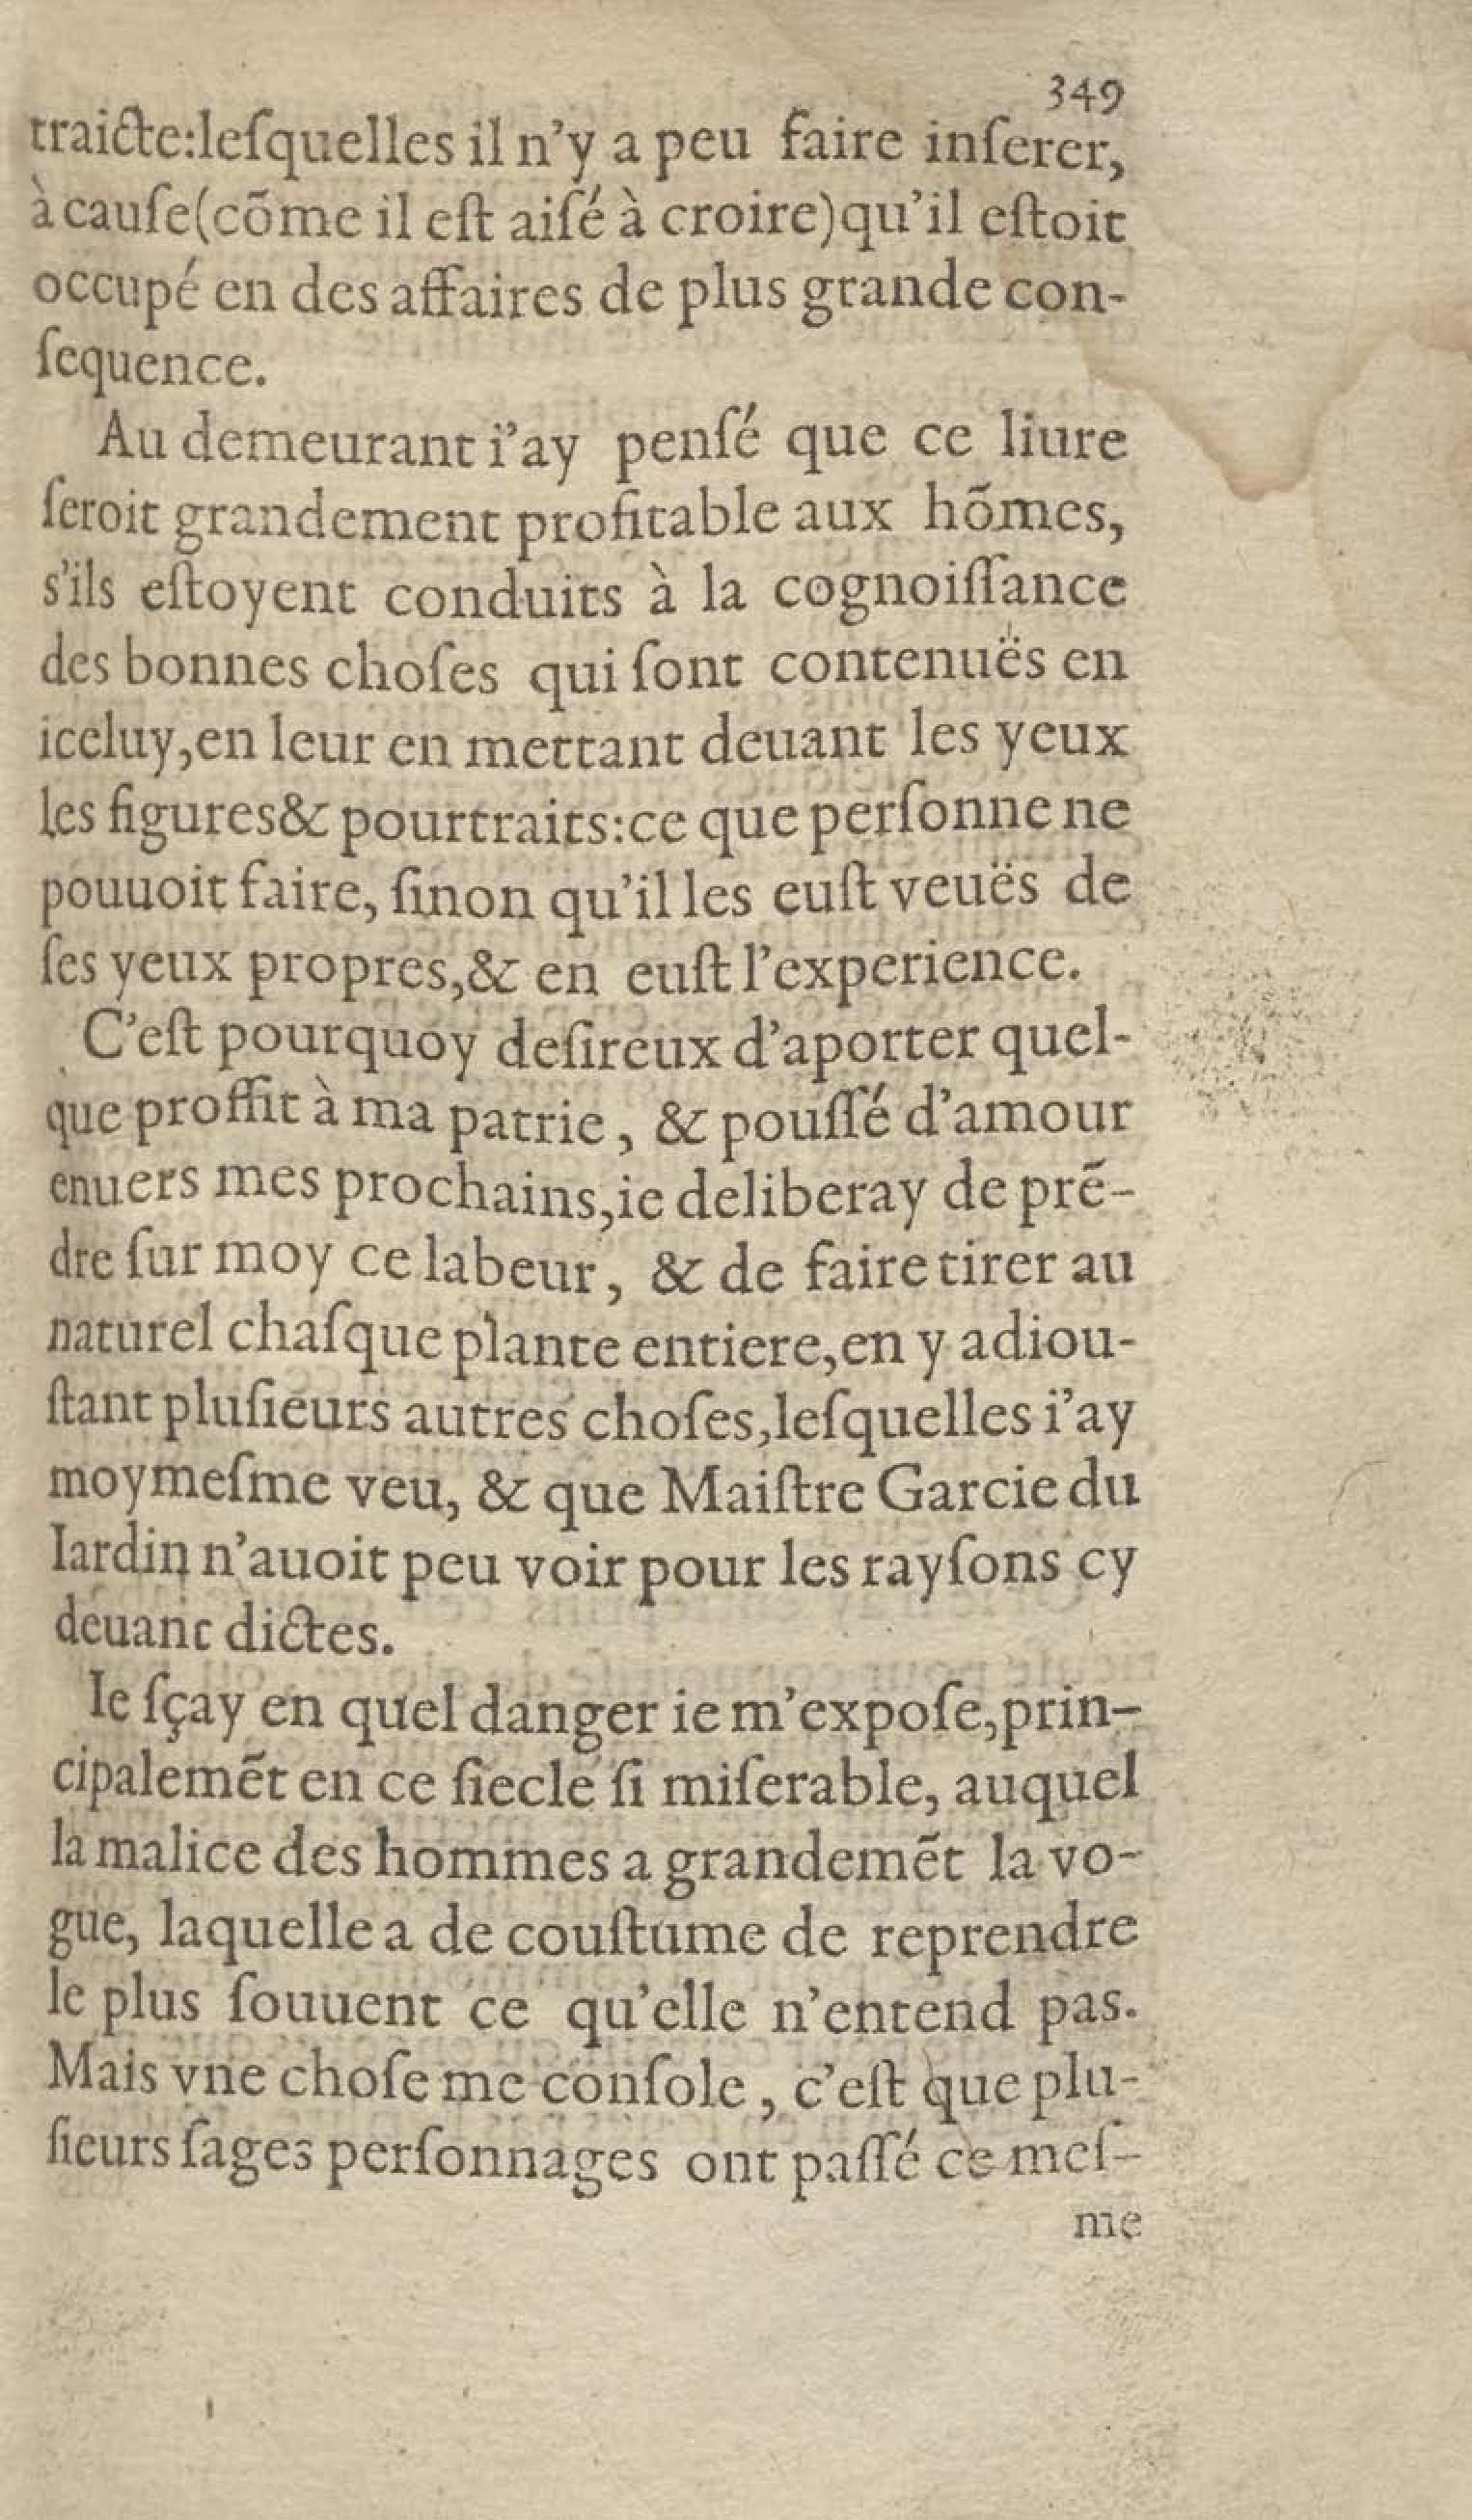 349
traicte:leſquelles il n'y a peu faire inſerer,
à cauſe(cõme il eſt aiſé à croire)qu'il eſtoit
occupé en des affaires de plus grande con-
ſequence.
Au demeurant i'ay penſé que ce liure
ſeroit grandement profitable aux hõmes,
s'ils eſtoyent conduits à la cognoiſſance
des bonnes choſes qui ſont contenuës en
iceluy,en leur en mettant deuant les yeux
les figures& pourtraits:ce que perſonne ne
pouuoit faire, ſinon qu'il les euſt veuës de
ſes yeux propres,& en euſt l'experience.
C'eſt pourquoy deſireux d'aporter quel-
que proffit à ma patrie, & pouſſé d'amour
enuers mes prochains,ie deliberay de prẽ-
dre ſur moy ce labeur, & de faire tirer au
naturel chaſque plante entiere,en y adiou-
ſtant pluſieurs autres choſes,leſquelles i'ay
moymeſme veu, & que Maiſtre Garcie du
Iardin n'auoit peu voir pour les rayſons cy
deuant dictes.
Ie ſçay en quel danger ie m'expoſe,prin-
cipalemẽt en ce ſiecle ſi miſerable, auquel
la malice des hommes a grandemẽt la vo-
gue, laquelle a de couſtume de reprendre
le plus ſouuent ce qu'elle n'entend pas.
Mais vne choſe me conſole, c'eſt que plu-
ſieurs ſages perſonnages ont paſſé ce meſ-
me